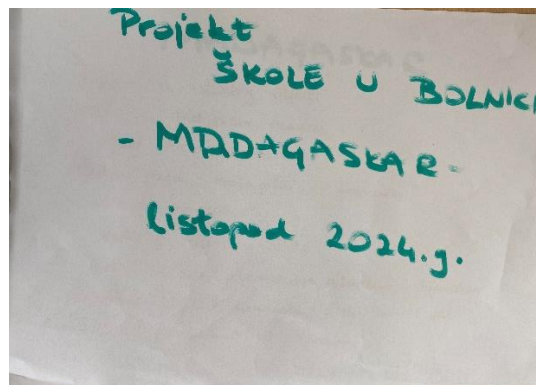 Projekt
ŠKOLE U BOLNICI
- MADAGASKAR -
listopad 2024.g.